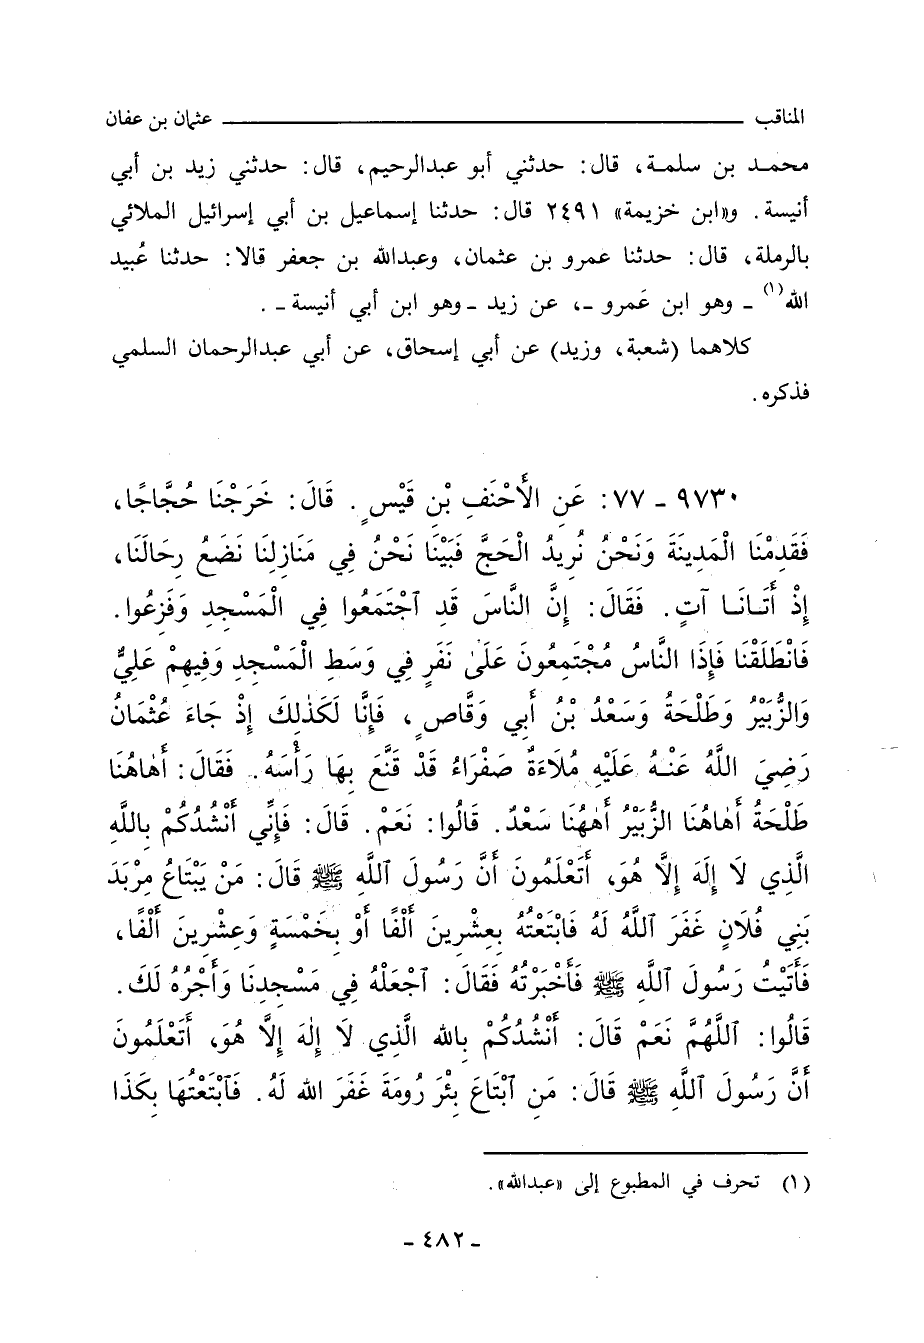 المناقب ــــــــــ عثمان بن عفان
محمد بن سلمة، قال: حدثني أبو عبدالرحيم، قال: حدثني زيد بن أبي
أنيسة. و«ابن خزيمة» ٢٤٩١ قال: حدثنا إسماعيل بن أبي إسرائيل الملائي
بالرملة، قال: حدثنا عمرو بن عثمان، وعبدالله بن جعفر قالا: حدثنا عُبيد
الله(١) ـ وهو ابن عَمرو ـ، عن زيد ـ وهو ابن أبي أنيسة ـ.
كلاهما (شعبة، وزيد) عن أبي إسحاق، عن أبي عبدالرحمان السلمي
فذكره.
٩٧٣٠ ـ ٧٧: عَنِ الأَحْنَفِ بْنِ قَيْسٍ. قَالَ: خَرَجْنَا حُجَّاجًا،
فَقَدِمْنَا الْمَدِينَةَ وَنَحْنُ نُرِيدُ الْحَجَّ فَبَيْنَا نَحْنُ فِي مَنَازِلِنَا نَضَعُ رِحَالَنَا،
إِذْ أَتَانَا آتٍ. فَقَالَ: إِنَّ النَّاسَ قَدِ ٱجْتَمَعُوا فِي الْمَسْجِدِ وَفَزِعُوا.
فَانْطَلَقْنَا فَإِذَا النَّاسُ مُجْتَمِعُونَ عَلَىٰ نَفَرٍ فِي وَسَطِ الْمَسْجِدِ وَفِيهِمْ عَلِيٌّ
وَالزُّبَيْرُ وَطَلْحَةُ وَسَعْدُ بْنُ أَبِي وَقَّاصٍ، فَإِنَّا لَكَذٰلِكَ إِذْ جَاءَ عُثْمَانُ
رَضِيَ اللَّهُ عَنْهُ عَلَيْهِ مُلَاءَةٌ صَفْرَاءُ قَدْ قَنَّعَ بِهَا رَأْسَهُ. فَقَالَ: أَهَاهُنَا
طَلْحَةُ أَهَاهُنَا الزُّبَيْرُ أَهٰهُنَا سَعْدٌ. قَالُوا: نَعَمْ. قَالَ: فَإِنِّي أَنْشُدُكُمْ بِاللَّهِ
الَّذِي لَا إِلَهَ إِلَّا هُوَ، أَتَعْلَمُونَ أَنَّ رَسُولَ ٱللَّهِ ﷺ قَالَ: مَنْ يَبْتَاعُ مِرْبَدَ
بَنِي فُلَانٍ غَفَرَ ٱللَّهُ لَهُ فَابْتَعْتُهُ بِعِشْرِينَ أَلْفًا أَوْ بِخَمْسَةٍ وَعِشْرِينَ أَلْفًا،
فَأَتَيْتُ رَسُولَ ٱللَّهِ ﷺ فَأَخْبَرْتُهُ فَقَالَ: ٱجْعَلْهُ فِي مَسْجِدِنَا وَأَجْرُهُ لَكَ.
قَالُوا: ٱللَّهُمَّ نَعَمْ قَالَ: أَنْشُدُكُمْ بِالله الَّذِي لَا إِلٰهَ إِلَّا هُوَ، أَتَعْلَمُونَ
أَنَّ رَسُولَ ٱللَّهِ ﷺ قَالَ: مَنِ ٱبْتَاعَ بِئْرَ رُومَةَ غَفَرَ الله لَهُ. فَٱبْتَعْتُهَا بِكَذَا
(١) تحرف في المطبوع إلى «عبدالله».
ـ ٤٨٢ ـ